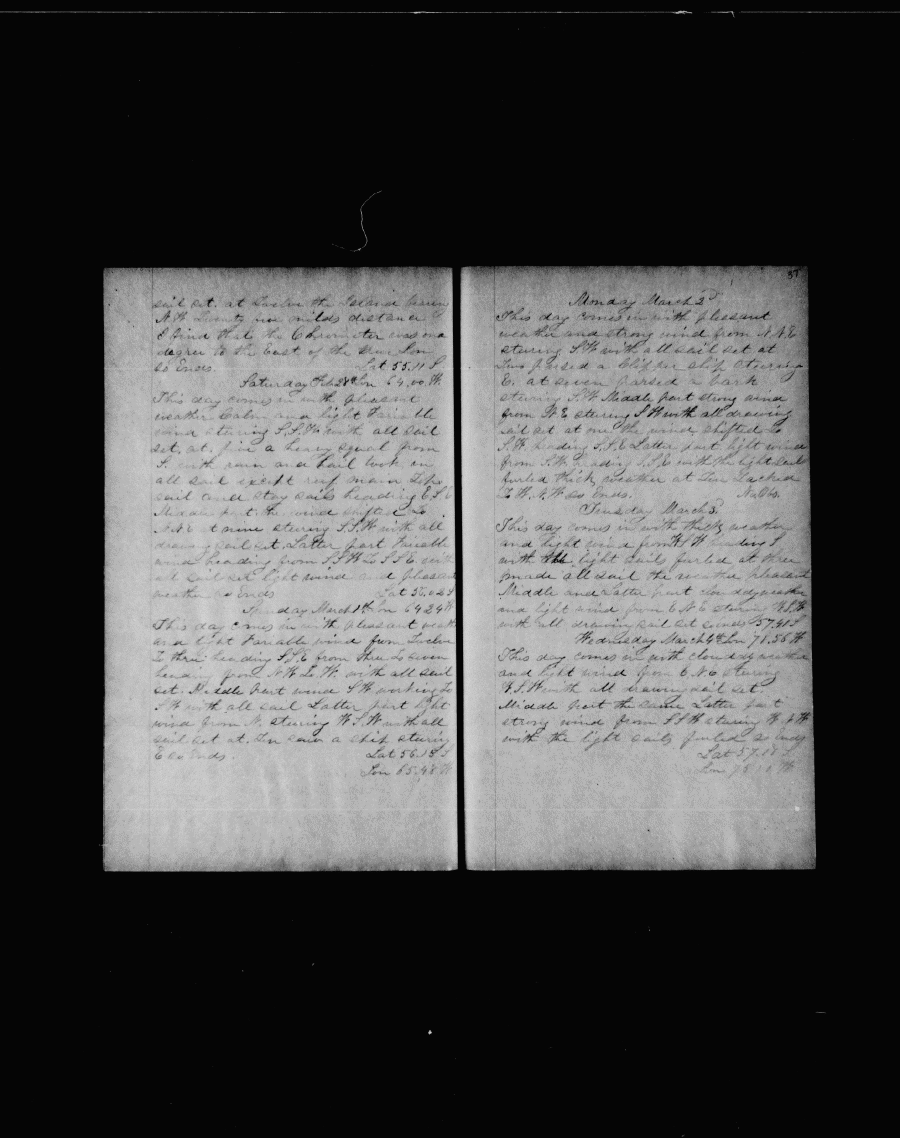 sail set. at twelve the Island bearin
N.W. twenty miles distance
I find that the Chronmeter was one
degree to the East of the true Lon
so Ends. Lat 55.11 S
Saturday Feb 28th Lon 64.00 W.
This day comes in with pleasant
weather Calm and light Variable
wind stering S.S.W. with all sail
set. at five a heavy squal from
S. with rain and hail took in
all sail except reef main Tops
sail and stay sails heading E.S.E
Middle part the wind shifted to
N.N.E at nine stering S.S.W with all
drawing sail set. Latter part Variable
wind heading from S.S.W to S.S.E. with
all sail set light wind and pleasant
weather so Ends Lat 56.02 S
Sunday March 1st Lon 64.24 W
This day comes in with pleasant weath
and light Variable wind from twelve
to three heading S.S.E from three to seven
heading from N.W. to W. with all sail
set. Middle part wind S.W. working to
S.W with all sail Latter part light
wind from N. stering W.S.W with all
sail set at. ten saw a ship stering
E so Ends. Lat 56.18 S
Lon 65.48 W
37
Monday March 2d
This day comes in with pleasant
weather and strong wind from N.N.E
stering S.W. with all sail set at
two passed a Clipper ship stering
E. at seven parsed a bark
stering S.W. Middle part strong wind
from N E stering S W with all drawing
sail set at one the wind shifted to
S.W. heading S.S.E Latter part light wind
from S.W. heading S.S.E with the light sails
furled thick weather at Ten tacked
To W.N.W so Ends. No Obs.
Tuesday March 3.
This day comes in with thick weather
and light wind from W S W heading S
with the light sails furled at three
made all sail the weather pleasant
Middle and Latter part clouddy weather
and light wind from E.N.E stering W.S.W.
with all drawing sail set so ends 57.41 S
Wednesday March 4th Lon 71.56 W
This day comes in with clouddy weather
and light wind from E.N.E stering
W.S.W with all drawing sail set.
Middle part the same Latter part
strong wind from S.S.W stering W
with the light sails furled so Ends
Lat 57.18 S
Lon W